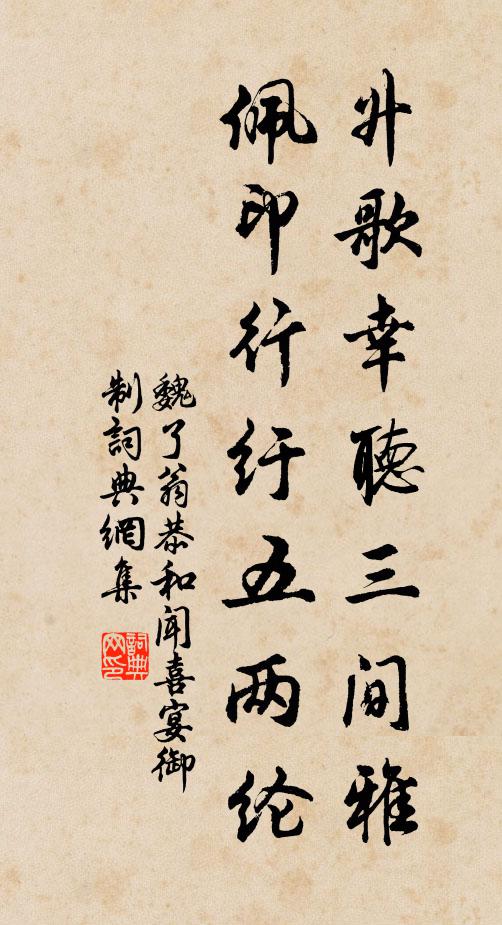 升歌幸聽三间雅
佩印行纡五两纶
魏了翁恭和闻喜宴御
制詞典網集
詞典网印